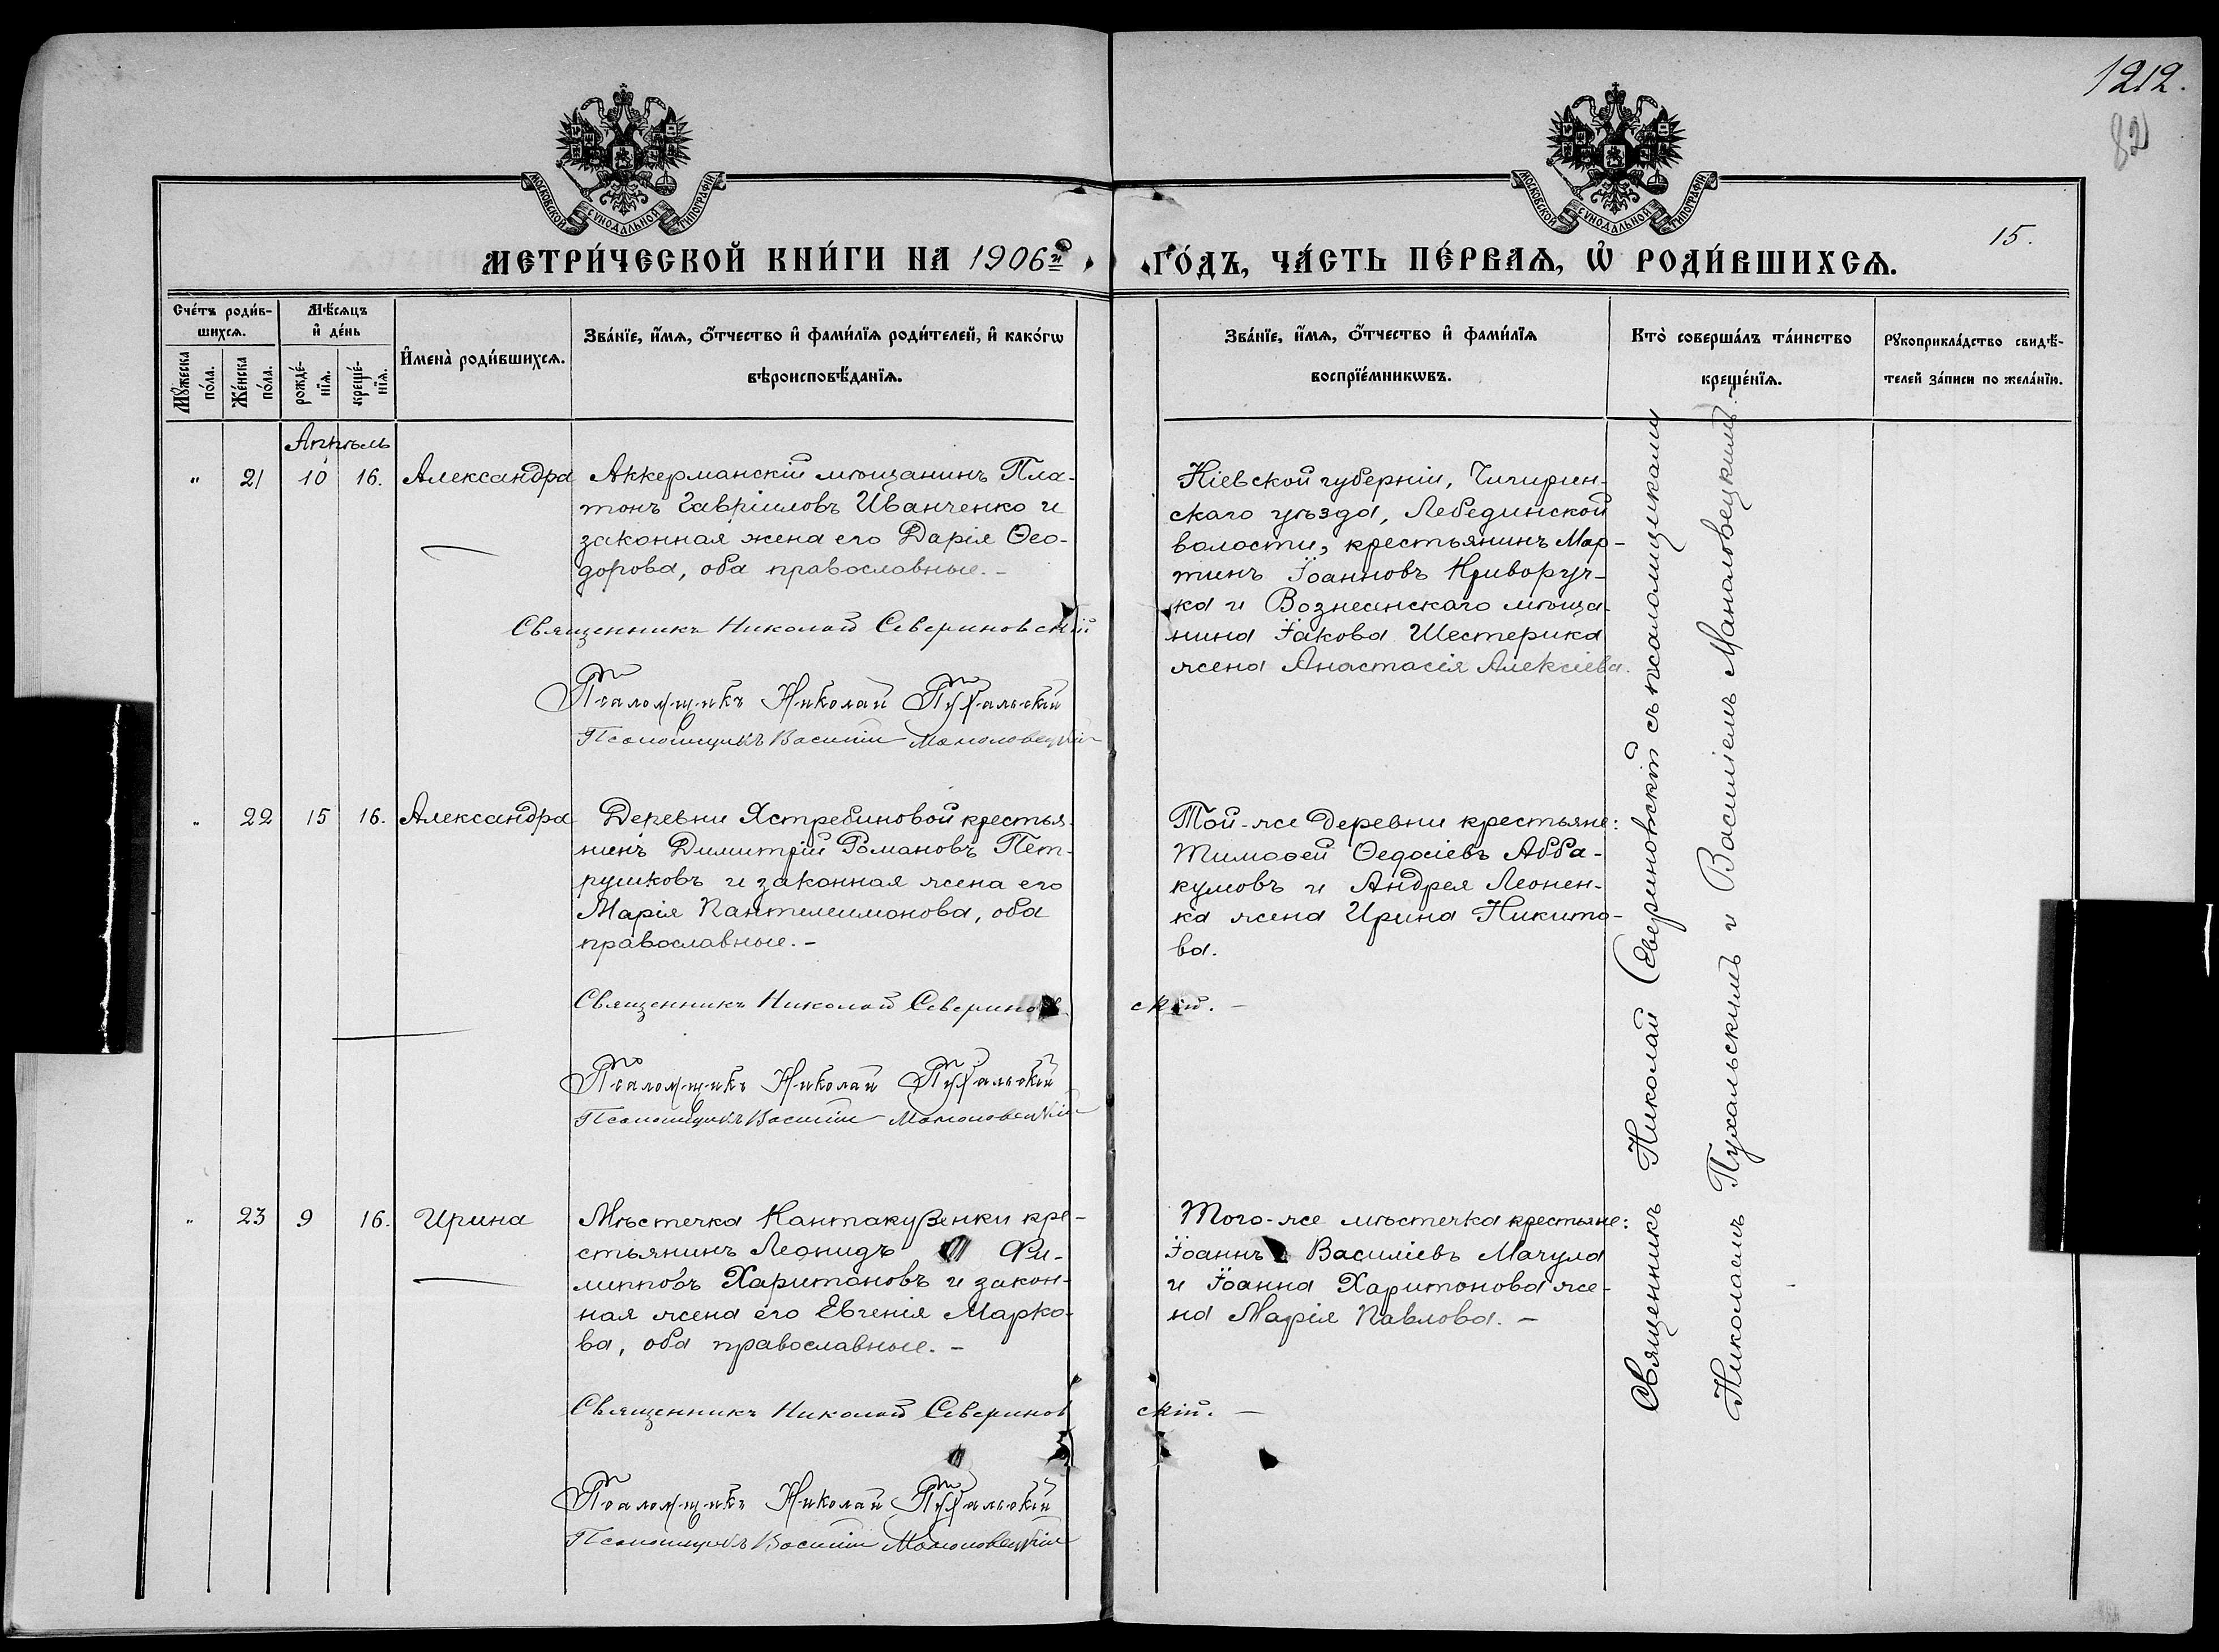 1212.
82
МОСКОВСКОЙ СѴНОДАЛЬНОЙ ТИПОГРАФІИ
МОСКОВСКОЙ СѴНОДАЛЬНОЙ ТИПОГРАФІИ
15.
МЕТРИ́ЧЕСКОЙ КНИ́ГИ НА 1906й
ГО́ДЪ, ЧА́СТЬ ПЕ́РВАѦ, Ѡ҆ РОДИ́ВШИХСѦ.
Сче́тъ роди́в-
шихсѧ.
Мꙋ́жеска
по́ла.
Же́нска
по́ла.
Мѣ́сѧцъ
и҆ де́нь
рожде́-
нїѧ.
креще́-
нїѧ.
И҆мена̀ роди́вшихсѧ.
Зва́нїе, и҆́мѧ, ѻ҆́тчество и҆ фами́лїѧ роди́телей, и҆ како́гѡ
вѣроисповѣ́данїѧ.
Зва́нїе, и҆́мѧ, ѻ҆́тчество и҆ фами́лїѧ
воспрїе́мникѡвъ.
Кто̀ соверша́лъ та́инство
креще́нїѧ.
Рꙋкоприкла́дство свидѣ́-
телей за́писи по жела́нїю.
Апрѣль
" 21 10 16. Александра
Аккерманскій мѣщанинъ Пла-
тонъ Гавріиловъ Иванченко и
законная жена его Дарія Ѳео-
дорова, оба православные. -
Священникъ Николай Севериновскій
Псаломщикъ Николай Пухальскій
Псаломщикъ Василій Маналовецкій
Кіевской губерніи, Чигирин-
скаго уѣзда, Лебединской
волости, крестьянинъ Мар-
тинъ Іоанновъ Криворуч-
ка и Вознесенскаго мѣща-
нина Іакова Шестерика
жена Анастасія Алексіева.
" 22 15 16. Александра
Деревни Ястребиновой крестья-
нинъ Димитрій Романовъ Пет-
рушковъ и законная жена его
Марія Пантелеимонова, оба
православные. -
Священникъ Николай Севериновскій. -
Псаломщикъ Николай Пухальскій
Псаломщикъ Василій Маналовецкій
Той-же деревни крестьяне:
Тимоѳей Ѳедосіевъ Авва-
кумовъ и Андрея Леонен-
ка жена Ирина Никито-
ва.
" 23 9 16. Ирина
Мѣстечка Кантакузенки кре-
стьянинъ Леонидъ Фи-
липповъ Харитоновъ и закон-
ная жена его Евгенія Марко-
ва, оба православные. -
Священникъ Николай Севериновскій. -
Псаломщикъ Николай Пухальскій
Псаломщикъ Василій Маналовецкій
Того-же мѣстечка крестьяне:
Іоаннъ Василіевъ Мачула
и Іоанна Харитонова же-
на Марія Павлова. -
Священникъ Николай Севериновскій съ псаломщиками
Николаемъ Пухальскимъ и Василіемъ Маналовецкимъ.